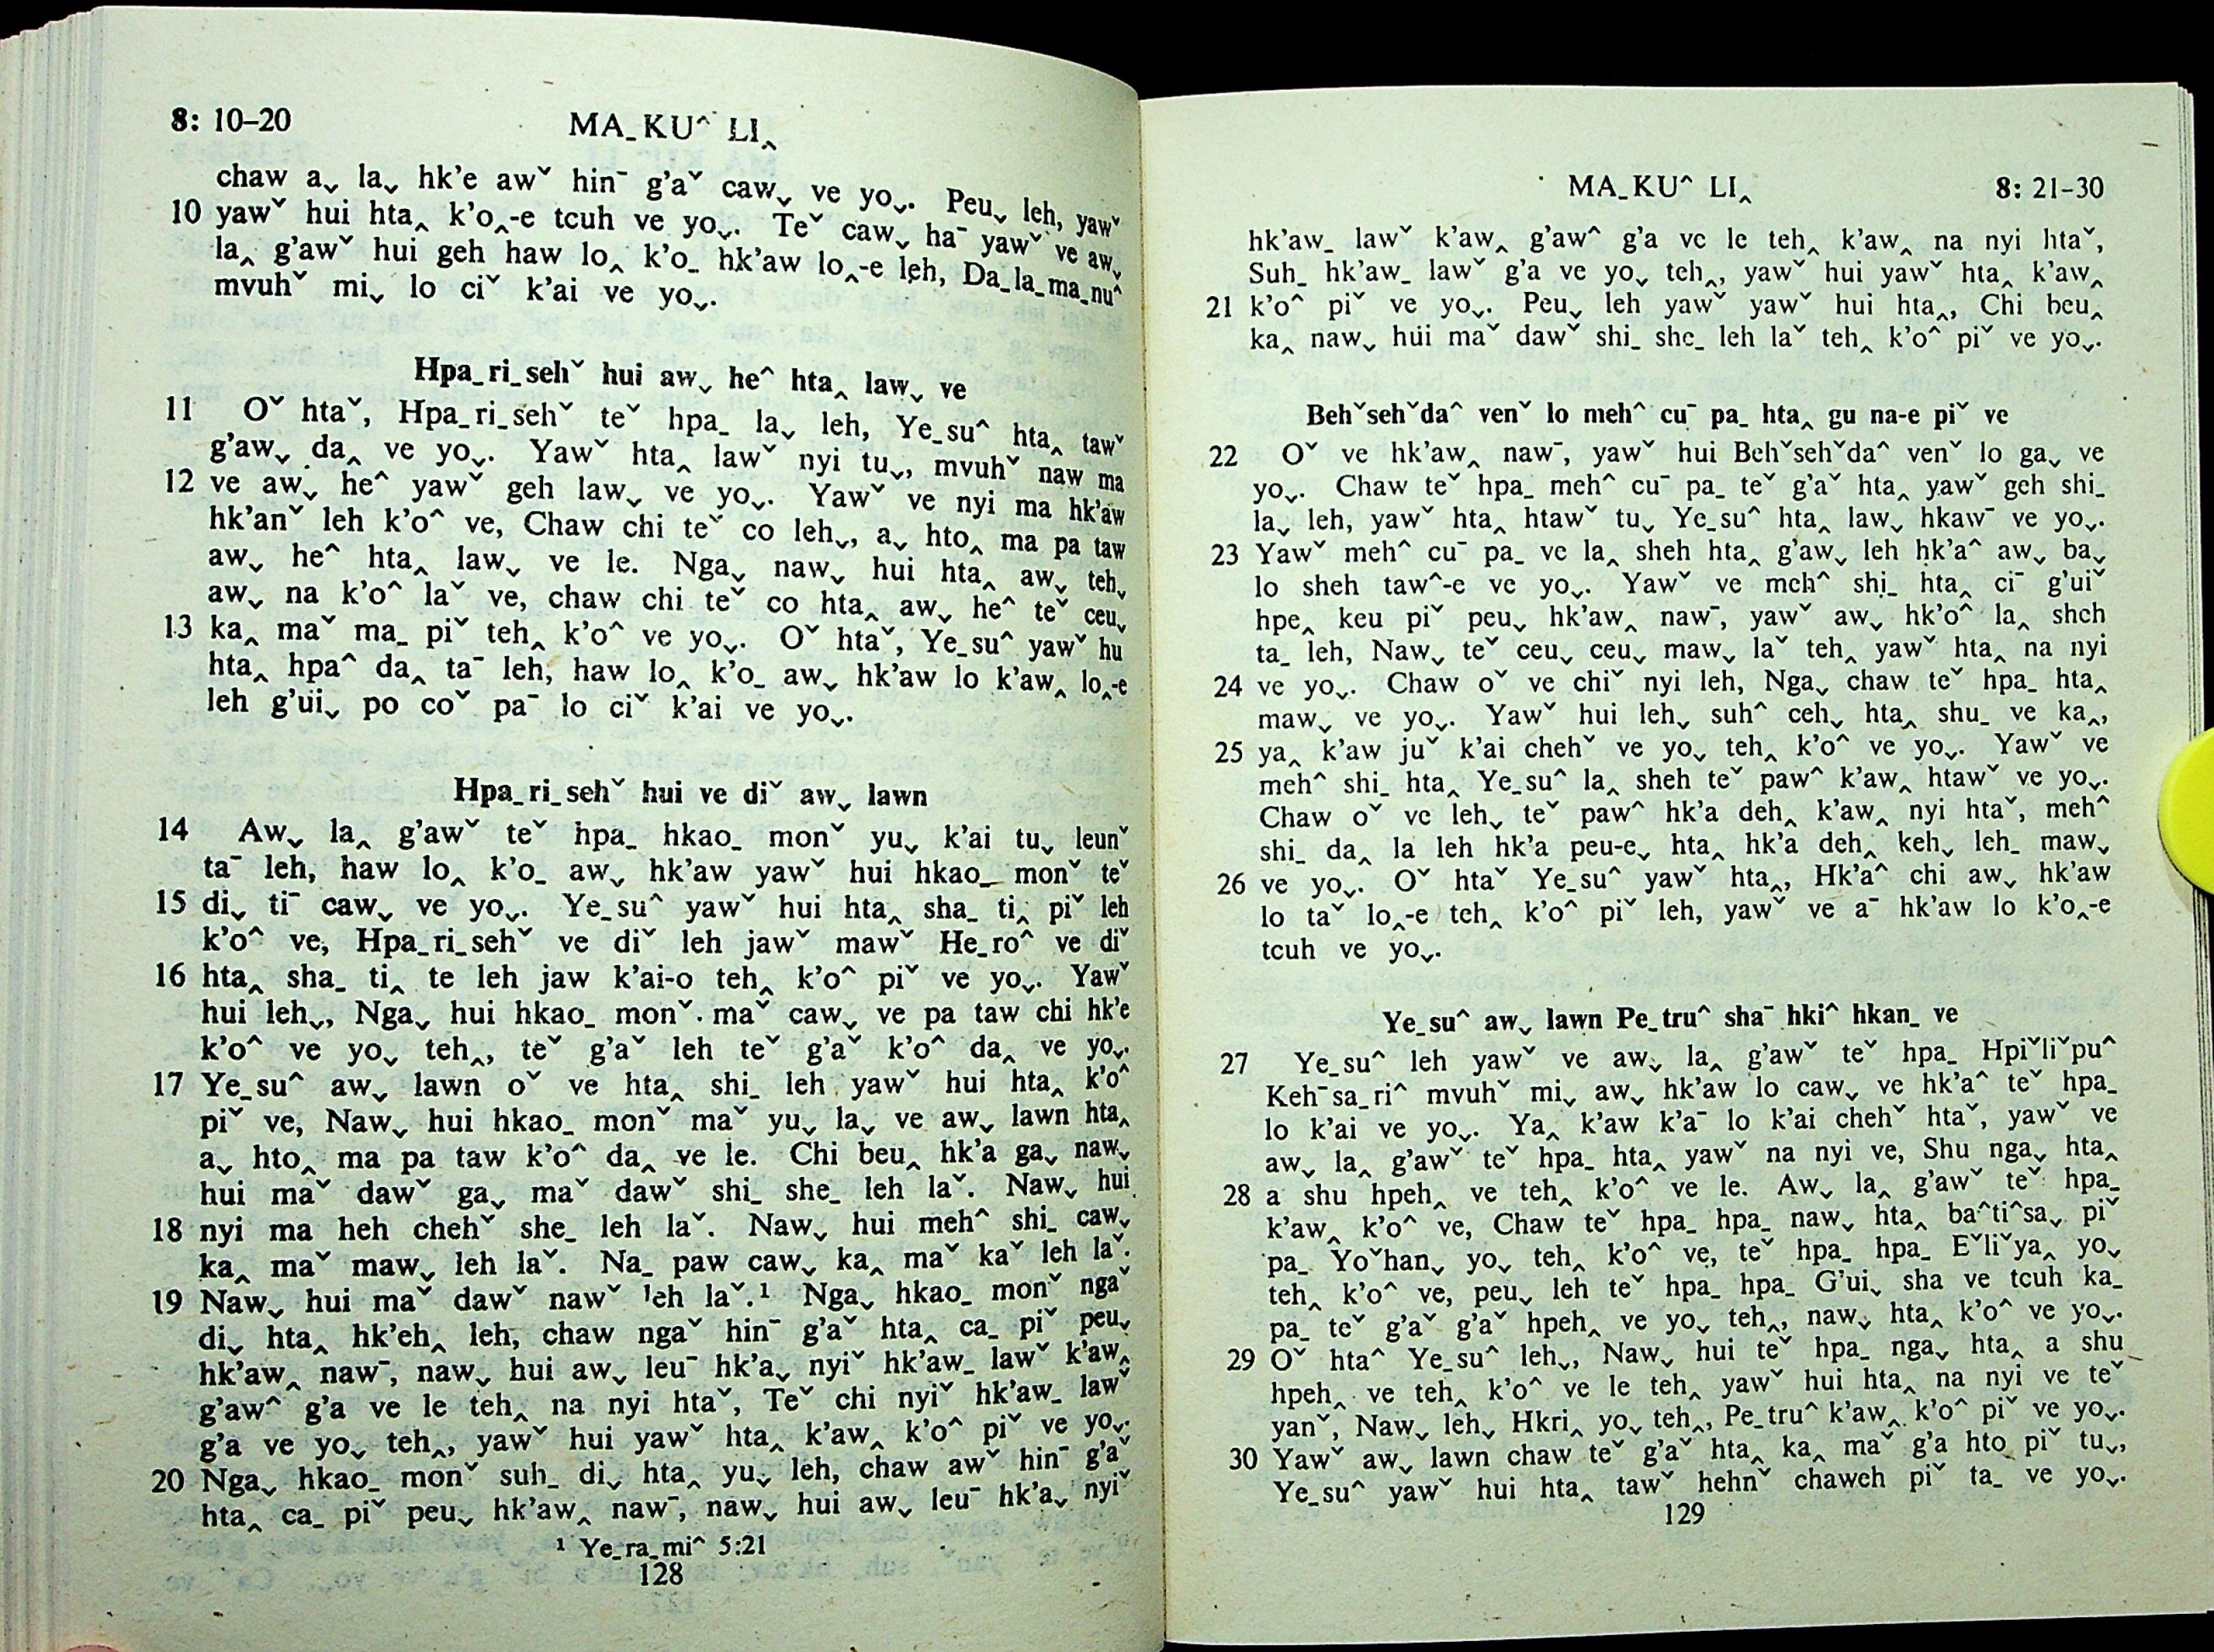 8: 10–20
MA˗KU^ LI‸
chaw a⌄ la⌄ hk'e awˇ hin⁻ g'aˇ caw⌄ ve yo⌄. Peu⌄ leh, yawˇ
10 yawˇ hui hta‸ k'o‸-e tcuh ve yo⌄. Teˇ caw⌄ ha⁻ yawˇ ve aw⌄
la‸ g'awˇ hui geh haw lo‸ k'o˗ hk'aw lo‸-e leh, Da˗la˗ma˗nu^
mvuhˇ mi⌄ lo ciˇ k'ai ve yo⌄.
Hpa˗ri˗sehˇ hui aw⌄ he^ hta‸ law⌄ ve
11 Oˇ htaˇ, Hpa˗ri˗sehˇ teˇ hpa˗ la⌄ leh, Ye˗su^ hta‸ tawˇ
g'aw⌄ da‸ ve yo⌄. Yawˇ hta‸ lawˇ nyi tu⌄, mvuhˇ naw ma
12 ve aw⌄ he^ yawˇ geh law⌄ ve yo⌄. Yawˇ ve nyi ma hk'aw
hk'anˇ leh k'o^ ve, Chaw chi teˇ co leh⌄, a⌄ hto‸ ma pa taw
aw⌄ he^ hta‸ law⌄ ve le. Nga⌄ naw⌄ hui hta‸ aw⌄ teh⌄
aw⌄ na k'o^ laˇ ve, chaw chi teˇ co hta‸ aw⌄ he^ teˇ ceu⌄
13 ka‸ maˇ ma˗ piˇ teh‸ k'o^ ve yo⌄. Oˇ htaˇ, Ye˗su^ yawˇ hu
hta‸ hpa^ da‸ ta⁻ leh, haw lo‸ k'o˗ aw⌄ hk'aw lo k'aw‸ lo‸-e
leh g'ui⌄ po coˇ pa⁻ lo ciˇ k'ai ve yo⌄.
Hpa˗ri˗sehˇ hui ve diˇ aw⌄ lawn
14 Aw⌄ la‸ g'awˇ teˇ hpa˗ hkao˗ monˇ yu⌄ k'ai tu⌄ leunˇ
ta⁻ leh, haw lo‸ k'o˗ aw⌄ hk'aw yawˇ hui hkao˗ monˇ teˇ
15 di⌄ ti⁻ caw⌄ ve yo⌄. Ye˗su^ yawˇ hui hta‸ sha˗ ti‸ piˇ leh
k'o^ ve, Hpa˗ri˗sehˇ ve diˇ leh jawˇ mawˇ He˗ro^ ve diˇ
16 hta‸ sha˗ ti‸ te leh jaw k'ai-o teh‸ k'o^ piˇ ve yo⌄. Yawˇ
hui leh⌄, Nga⌄ hui hkao˗ monˇ maˇ caw⌄ ve pa taw chi hk'e
k'o^ ve yo⌄ teh‸, teˇ g'aˇ leh teˇ g'aˇ k'o^ da‸ ve yo⌄.
17 Ye˗su^ aw⌄ lawn oˇ ve hta‸ shi˗ leh yawˇ hui hta‸ k'o^
piˇ ve, Naw⌄ hui hkao˗ monˇ maˇ yu⌄ la⌄ ve aw⌄ lawn hta‸
a⌄ hto‸ ma pa taw k'o^ da‸ ve le. Chi beu‸ hk'a ga⌄ naw⌄
hui maˇ dawˇ ga⌄ maˇ dawˇ shi˗ she˗ leh laˇ. Naw⌄ hui
18 nyi ma heh chehˇ she˗ leh laˇ. Naw⌄ hui meh^ shi˗ caw⌄
ka‸ maˇ maw⌄ leh laˇ. Na˗ paw caw⌄ ka‸ maˇ kaˇ leh laˇ.
19 Naw⌄ hui maˇ dawˇ nawˇ leh laˇ.¹ Nga⌄ hkao˗ monˇ ngaˇ
di⌄ hta‸ hk'eh‸ leh, chaw ngaˇ hin⁻ g'aˇ hta‸ ca˗ piˇ peu⌄
hk'aw‸ naw⁻, naw⌄ hui aw⌄ leu⁻ hk'a⌄ nyiˇ hk'aw˗ lawˇ k'aw‸
g'aw^ g'a ve le teh‸ na nyi htaˇ, Teˇ chi nyiˇ hk'aw˗ lawˇ
g'a ve yo⌄ teh‸, yawˇ hui yawˇ hta‸ k'aw‸ k'o^ piˇ ve yo⌄.
20 Nga⌄ hkao˗ monˇ suh˗ di⌄ hta‸ yu⌄ leh, chaw awˇ hin⁻ g'aˇ
hta‸ ca˗ piˇ peu⌄ hk'aw‸ naw⁻, naw⌄ hui aw⌄ leu⁻ hk'a⌄ nyiˇ
¹ Ye˗ra˗mi^ 5:21
128
MA˗KU^ LI‸
8: 21–30
hk'aw˗ lawˇ k'aw‸ g'aw^ g'a ve le teh‸ k'aw‸ na nyi htaˇ,
Suh˗ hk'aw˗ lawˇ g'a ve yo⌄ teh‸, yawˇ hui yawˇ hta‸ k'aw‸
21 k'o^ piˇ ve yo⌄. Peu⌄ leh yawˇ yawˇ hui hta‸, Chi beu‸
ka‸ naw⌄ hui maˇ dawˇ shi˗ she˗ leh laˇ teh‸ k'o^ piˇ ve yo⌄.
Behˇsehˇda^ venˇ lo meh^ cu⁻ pa˗ hta‸ gu na-e piˇ ve
22 Oˇ ve hk'aw‸ naw⁻, yawˇ hui Behˇsehˇda^ venˇ lo ga⌄ ve
yo⌄. Chaw teˇ hpa˗ meh^ cu⁻ pa˗ teˇ g'aˇ hta‸ yawˇ geh shi˗
la⌄ leh, yawˇ hta‸ htawˇ tu⌄ Ye˗su^ hta‸ law⌄ hkaw⁻ ve yo⌄.
23 Yawˇ meh^ cu⁻ pa˗ ve la‸ sheh hta‸ g'aw⌄ leh hk'a^ aw⌄ ba⌄
lo sheh taw^-e ve yo⌄. Yawˇ ve meh^ shi˗ hta‸ ci⁻ g'uiˇ
hpe‸ keu piˇ peu⌄ hk'aw‸ naw⁻, yawˇ aw⌄ hk'o^ la‸ sheh
ta˗ leh, Naw⌄ teˇ ceu⌄ ceu⌄ maw⌄ laˇ teh‸ yawˇ hta‸ na nyi
24 ve yo⌄. Chaw oˇ ve chiˇ nyi leh, Nga⌄ chaw teˇ hpa˗ hta‸
maw⌄ ve yo⌄. Yawˇ hui leh⌄ suh^ ceh⌄ hta‸ shu˗ ve ka‸,
25 ya‸ k'aw juˇ k'ai chehˇ ve yo⌄ teh‸ k'o^ ve yo⌄. Yawˇ ve
meh^ shi˗ hta‸ Ye˗su^ la‸ sheh teˇ paw^ k'aw‸ htawˇ ve yo⌄.
Chaw oˇ ve leh⌄ teˇ paw^ hk'a deh‸ k'aw‸ nyi htaˇ, meh^
shi˗ da‸ la leh hk'a peu-e⌄ hta‸ hk'a deh‸ keh⌄ leh˗ maw⌄
26 ve yo⌄. Oˇ htaˇ Ye˗su^ yawˇ hta‸, Hk'a^ chi aw⌄ hk'aw
lo taˇ lo‸-e teh‸ k'o^ piˇ leh, yawˇ ve a⁻ hk'aw lo k'o‸-e
tcuh ve yo⌄.
Ye˗su^ aw⌄ lawn Pe˗tru^ sha⁻ hki^ hkan˗ ve
27 Ye˗su^ leh yawˇ ve aw⌄ la‸ g'awˇ teˇ hpa˗ Hpiˇliˇpu^
Keh⁻sa˗ri^ mvuhˇ mi⌄ aw⌄ hk'aw lo caw⌄ ve hk'a^ teˇ hpa˗
lo k'ai ve yo⌄. Ya‸ k'aw k'a⁻ lo k'ai chehˇ htaˇ, yawˇ ve
aw⌄ la‸ g'awˇ teˇ hpa˗ hta‸ yawˇ na nyi ve, Shu nga⌄ hta‸
28 a shu hpeh‸ ve teh‸ k'o^ ve le. Aw⌄ la‸ g'awˇ teˇ hpa˗
k'aw‸ k'o^ ve, Chaw teˇ hpa˗ hpa˗ naw⌄ hta‸ ba^ti^sa⌄ piˇ
pa˗ Yoˇhan⌄ yo⌄ teh‸ k'o^ ve, teˇ hpa˗ hpa˗ Eˇliˇya‸ yo⌄
teh‸ k'o^ ve, peu⌄ leh teˇ hpa˗ hpa˗ G'ui⌄ sha ve tcuh ka˗
pa˗ teˇ g'aˇ g'aˇ hpeh‸ ve yo⌄ teh‸, naw⌄ hta‸ k'o^ ve yo⌄.
29 Oˇ hta^ Ye˗su^ leh⌄, Naw⌄ hui teˇ hpa˗ nga⌄ hta‸ a shu
hpeh‸ ve teh‸ k'o^ ve le teh‸ yawˇ hui hta‸ na nyi ve teˇ
yanˇ, Naw⌄ leh⌄ Hkri‸ yo⌄ teh‸, Pe˗tru^ k'aw‸ k'o^ piˇ ve yo⌄.
30 Yawˇ aw⌄ lawn chaw teˇ g'aˇ hta‸ ka‸ maˇ g'a hto˗ piˇ tu⌄,
Ye˗su^ yawˇ hui hta‸ tawˇ hehnˇ chaweh piˇ ta˗ ve yo⌄.
129